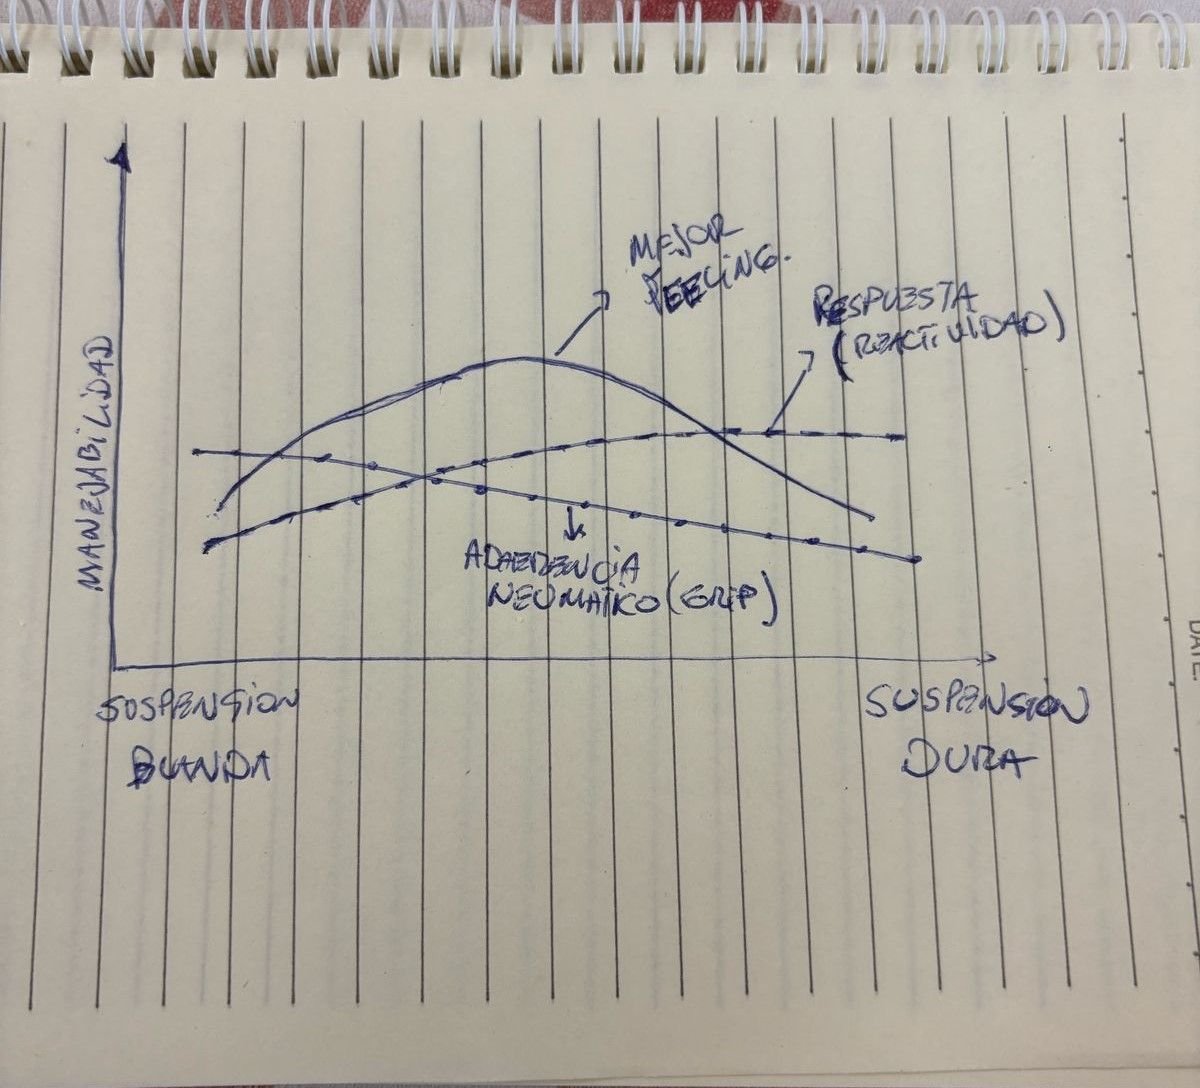 MEJOR
FEELING.
RESPUESTA
(REACTIVIDAD)
MANEJABILIDAD
ADHERENCIA
NEUMATICO (GRIP)
SUSPENSION
BLANDA
SUSPENSION
DURA
DATE: